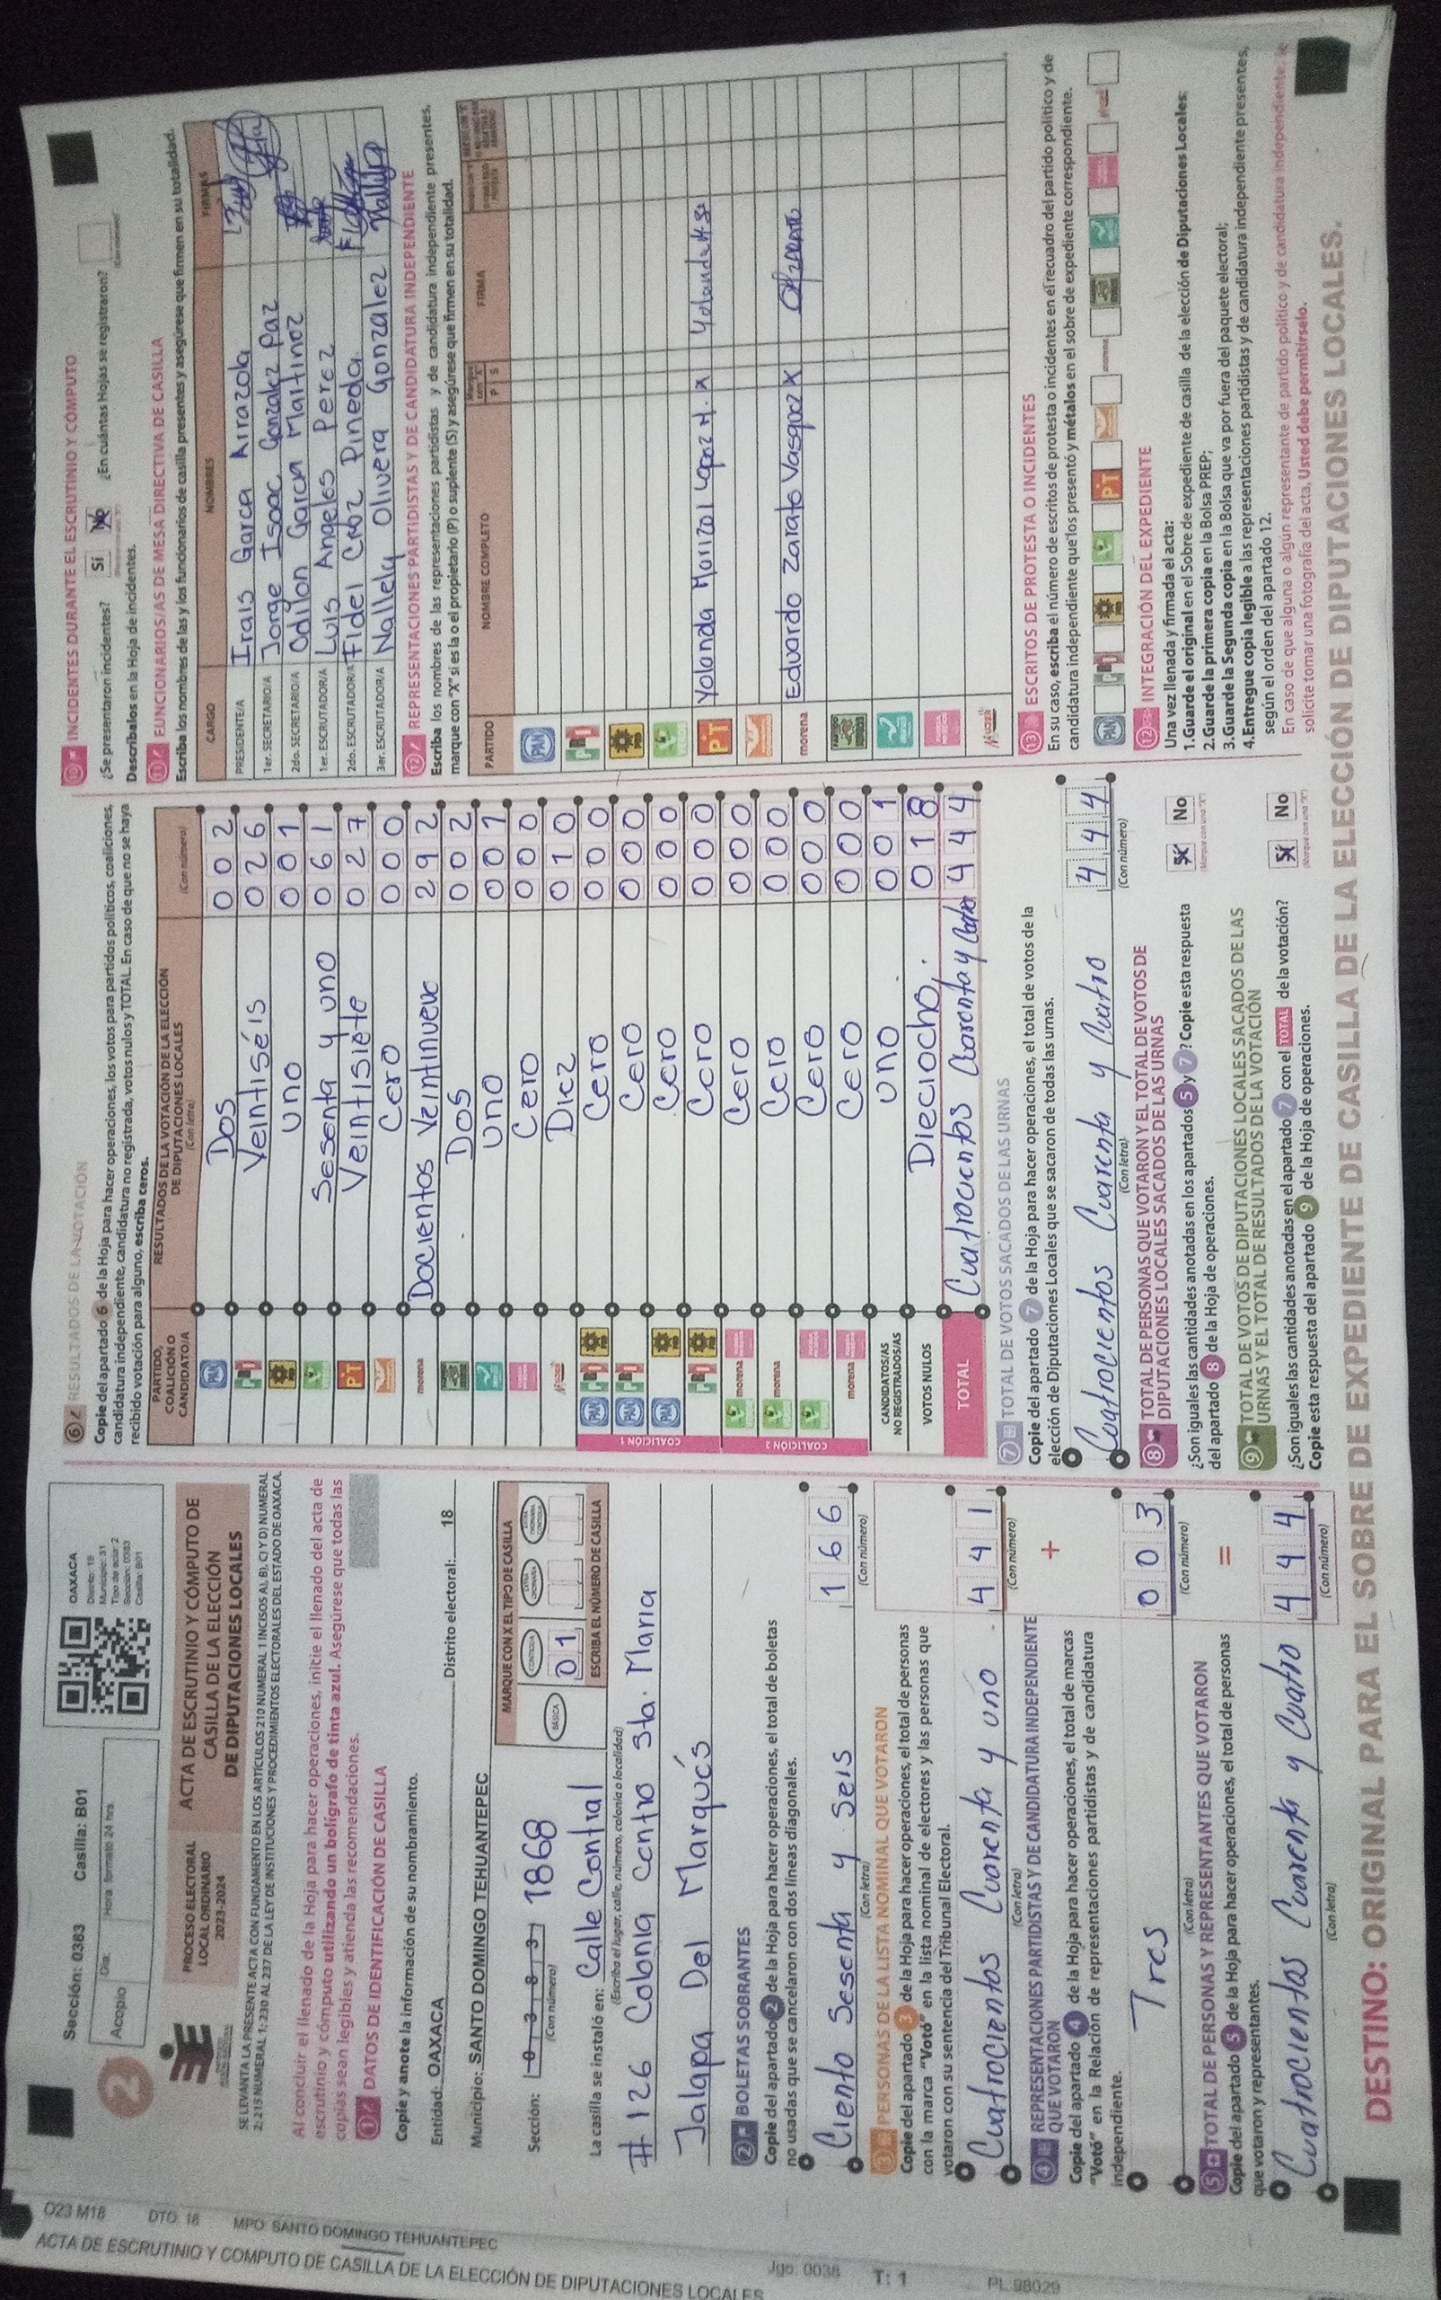 O23 M18 DTO. 18 MPO: SANTO DOMINGO TEHUANTEPEC
ACTA DE ESCRUTINIO Y COMPUTO DE CASILLA DE LA ELECCIÓN DE DIPUTACIONES LOCALES
Jgo. 0038 T: 1 PL 98029
Sección: 0383 Casilla: B01
2
Acopio
Día:
Hora: formato 24 hrs.
OAXACA
Distrito: 18
Municipio: 31
Tipo de acta: 2
Sección: 0383
Casilla: B01
PROCESO ELECTORAL
LOCAL ORDINARIO
2023-2024
ACTA DE ESCRUTINIO Y CÓMPUTO DE
CASILLA DE LA ELECCIÓN
DE DIPUTACIONES LOCALES
SE LEVANTA LA PRESENTE ACTA CON FUNDAMENTO EN LOS ARTÍCULOS 210 NUMERAL 1 INCISOS A), B), C) Y D) NUMERAL
2; 215 NUMERAL 1; 230 AL 237 DE LA LEY DE INSTITUCIONES Y PROCEDIMIENTOS ELECTORALES DEL ESTADO DE OAXACA.
Al concluir el llenado de la Hoja para hacer operaciones, inicie el llenado del acta de
escrutinio y cómputo utilizando un bolígrafo de tinta azul. Asegúrese que todas las
copias sean legibles y atienda las recomendaciones.
1 DATOS DE IDENTIFICACIÓN DE CASILLA
Copie y anote la información de su nombramiento.
Entidad: OAXACA Distrito electoral: 18
Municipio: SANTO DOMINGO TEHUANTEPEC
Sección: 0 3 8 3 1868
(Con número)
MARQUE CON X EL TIPO DE CASILLA
BÁSICA
CONTIGUA
0 1
ESCRIBA EL NÚMERO DE CASILLA
La casilla se instaló en: Calle Central
(Escriba el lugar, calle, número, colonia o localidad)
#126 Colonia Centro Sta. Maria
Jalapa Del Marqués
2 BOLETAS SOBRANTES
Copie del apartado 2 de la Hoja para hacer operaciones, el total de boletas
no usadas que se cancelaron con dos líneas diagonales.
Ciento Sesenta y Seis 166
(Con letra) (Con número)
3 PERSONAS DE LA LISTA NOMINAL QUE VOTARON
Copie del apartado 3 de la Hoja para hacer operaciones, el total de personas
con la marca "Votó" en la lista nominal de electores y las personas que
votaron con su sentencia del Tribunal Electoral.
Cuatrocientos Cuarenta y uno 441
(Con letra) (Con número)
+
4 REPRESENTACIONES PARTIDISTAS Y DE CANDIDATURA INDEPENDIENTE
QUE VOTARON
Copie del apartado 4 de la Hoja para hacer operaciones, el total de marcas
"Votó" en la Relación de representaciones partidistas y de candidatura
independiente.
Tres 003
(Con letra) (Con número)
=
5 TOTAL DE PERSONAS Y REPRESENTANTES QUE VOTARON
Copie del apartado 5 de la Hoja para hacer operaciones, el total de personas
que votaron y representantes.
Cuatrocientos Cuarenta y Cuatro 444
(Con letra) (Con número)
6 RESULTADOS DE LA VOTACIÓN
Copie del apartado 6 de la Hoja para hacer operaciones, los votos para partidos políticos, coaliciones,
candidatura independiente, candidatura no registrada, votos nulos y TOTAL. En caso de que no se haya
recibido votación para alguno, escriba ceros.
PARTIDO, COALICIÓN O CANDIDATO/A
RESULTADOS DE LA VOTACIÓN DE LA ELECCIÓN
DE DIPUTACIONES LOCALES
(Con letra) (Con número)
PAN Dos 002
PRI Veintiséis 026
PRD uno 001
VERDE Sesenta y uno 061
PT Veintisiete 027
Cero 000
morena Docientos Veintinueve 292
Dos 002
Uno 001
Cero 000
Diez 010
COALICIÓN 1
PAN PRI PRD Cero 000
PAN PRI Cero 000
PAN PRD Cero 000
PRI PRD Cero 000
COALICIÓN 2
VERDE morena Cero 000
VERDE morena Cero 000
VERDE Cero 000
morena Cero 000
CANDIDATOS/AS
NO REGISTRADOS/AS uno 001
VOTOS NULOS Dieciocho 018
TOTAL Cuatrocientos Cuarenta y Cuatro 444
7 TOTAL DE VOTOS SACADOS DE LAS URNAS
Copie del apartado 7 de la Hoja para hacer operaciones, el total de votos de la
elección de Diputaciones Locales que se sacaron de todas las urnas.
Cuatrocientos Cuarenta y Cuatro 444
(Con letra) (Con número)
8 TOTAL DE PERSONAS QUE VOTARON Y EL TOTAL DE VOTOS DE
DIPUTACIONES LOCALES SACADOS DE LAS URNAS
¿Son iguales las cantidades anotadas en los apartados 5 y 7? Copie esta respuesta
del apartado 8 de la Hoja de operaciones.
Sí No
(Marque con una "X")
9 TOTAL DE VOTOS DE DIPUTACIONES LOCALES SACADOS DE LAS
URNAS Y EL TOTAL DE RESULTADOS DE LA VOTACIÓN
¿Son iguales las cantidades anotadas en el apartado 7 con el TOTAL de la votación?
Copie esta respuesta del apartado 9 de la Hoja de operaciones.
Sí No
(Marque con una "X")
10 INCIDENTES DURANTE EL ESCRUTINIO Y CÓMPUTO
¿Se presentaron incidentes? Sí No ¿En cuántas Hojas se registraron?
Descríbalos en la Hoja de incidentes.
11 FUNCIONARIOS/AS DE MESA DIRECTIVA DE CASILLA
Escriba los nombres de las y los funcionarios de casilla presentes y asegúrese que firmen en su totalidad.
CARGO NOMBRES FIRMAS
PRESIDENTE/A Irais Garca Arrazola
1er. SECRETARIO/A Jorge Isaac Gonzalez Paz
2do. SECRETARIO/A Odilon Garcia Martinez
1er. ESCRUTADOR/A Luis Angeles Perez
2do. ESCRUTADOR/A Fidel Cruz Pineda
3er. ESCRUTADOR/A Nallely Olivera Gonzalez Nallely
12 REPRESENTACIONES PARTIDISTAS Y DE CANDIDATURA INDEPENDIENTE
Escriba los nombres de las representaciones partidistas y de candidatura independiente presentes,
marque con "X" si es la o el propietario (P) o suplente (S) y asegúrese que firmen en su totalidad.
PARTIDO NOMBRE COMPLETO P S FIRMA
PAN
PRI
PRD
VERDE
PT Yolanda Marizol Lopez H. X
morena Eduardo Zarate Vasquez X
MUJER
13 ESCRITOS DE PROTESTA O INCIDENTES
En su caso, escriba el número de escritos de protesta o incidentes en el recuadro del partido político y de
candidatura independiente que los presentó y métalos en el sobre de expediente correspondiente.
PAN PRI PRD VERDE PT morena
INTEGRACIÓN DEL EXPEDIENTE
Una vez llenada y firmada el acta:
1.Guarde el original en el Sobre de expediente de casilla de la elección de Diputaciones Locales;
2.Guarde la primera copia en la Bolsa PREP;
3.Guarde la Segunda copia en la Bolsa que va por fuera del paquete electoral;
4.Entregue copia legible a las representaciones partidistas y de candidatura independiente presentes,
según el orden del apartado 12.
En caso de que alguna o algún representante de partido político y de candidatura independiente
solicite tomar una fotografía del acta, Usted debe permitírselo.
DESTINO: ORIGINAL PARA EL SOBRE DE EXPEDIENTE DE CASILLA DE LA ELECCIÓN DE DIPUTACIONES LOCALES.